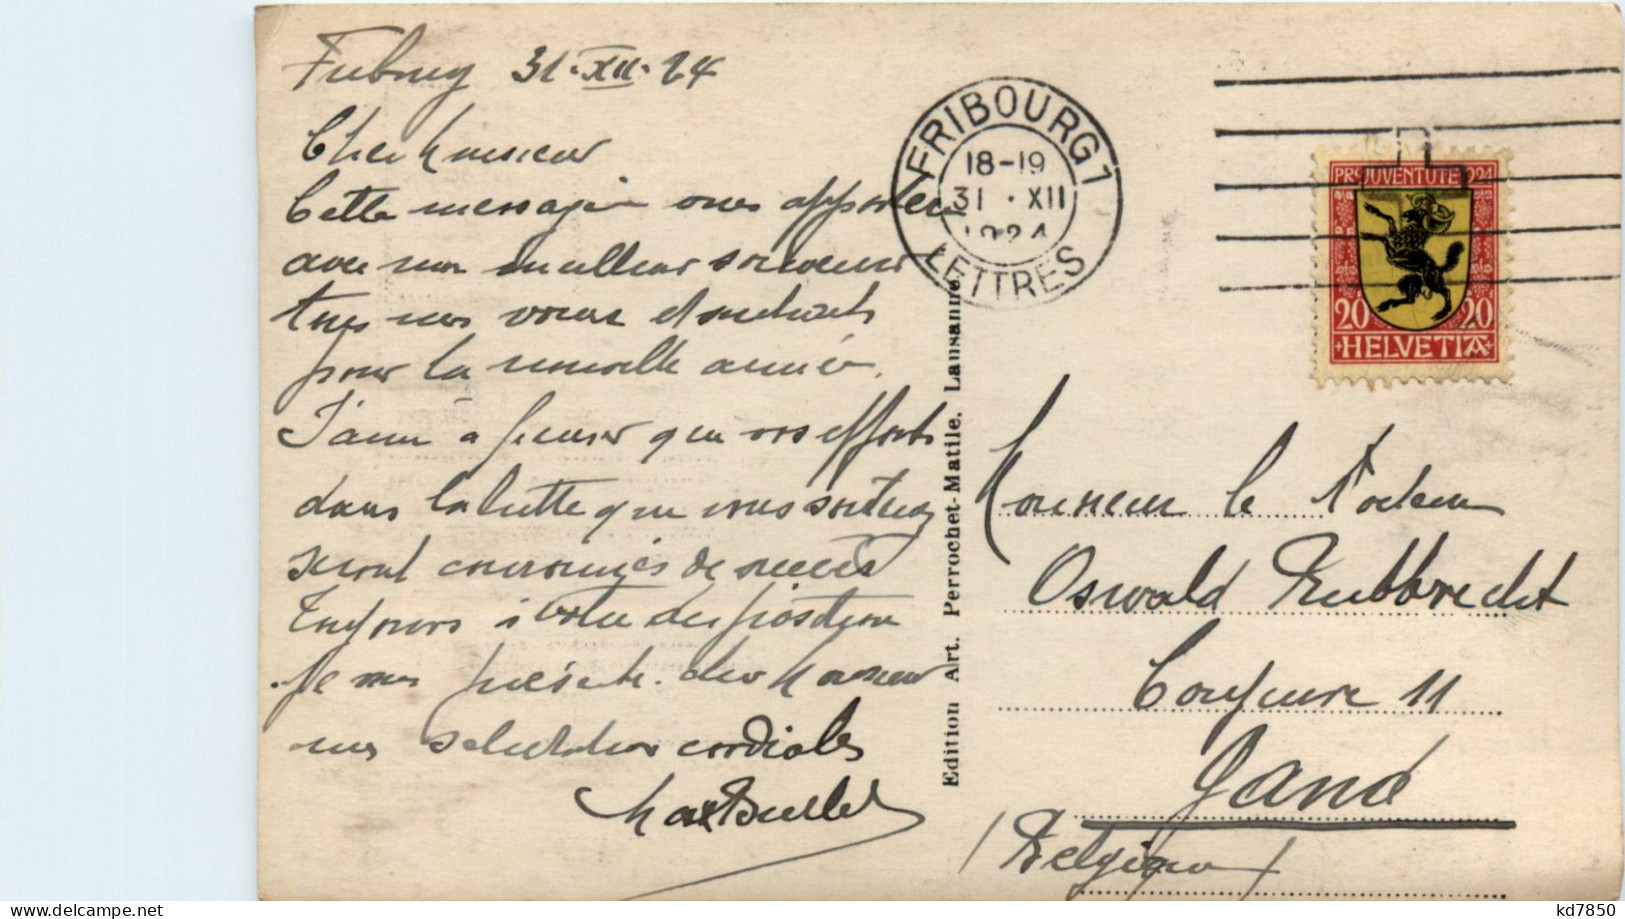 Fribourg 31.XII.24
Cher Monsieur
Cette messagère vous apportera
avec mon meilleur souvenir
tous mes vœux et souhaits
pour la nouvelle année.
J'aime à penser que vos efforts
dans la lutte que vous soutenez
seront couronnés de succès
Toujours à votre disposition
je vous présente, cher Monsieur
mes salutations cordiales
Max Bullet
Edition Art. Perrochet-Matile. Lausanne.
FRIBOURG 1
18-19
31.XII
1924
LETTRES
PRO JUVENTUTE 1924
20 20
+HELVETIA+
Monsieur le Docteur
Oswald Rubbrecht
Coupure 11
Gand
(Belgique)
kd7850